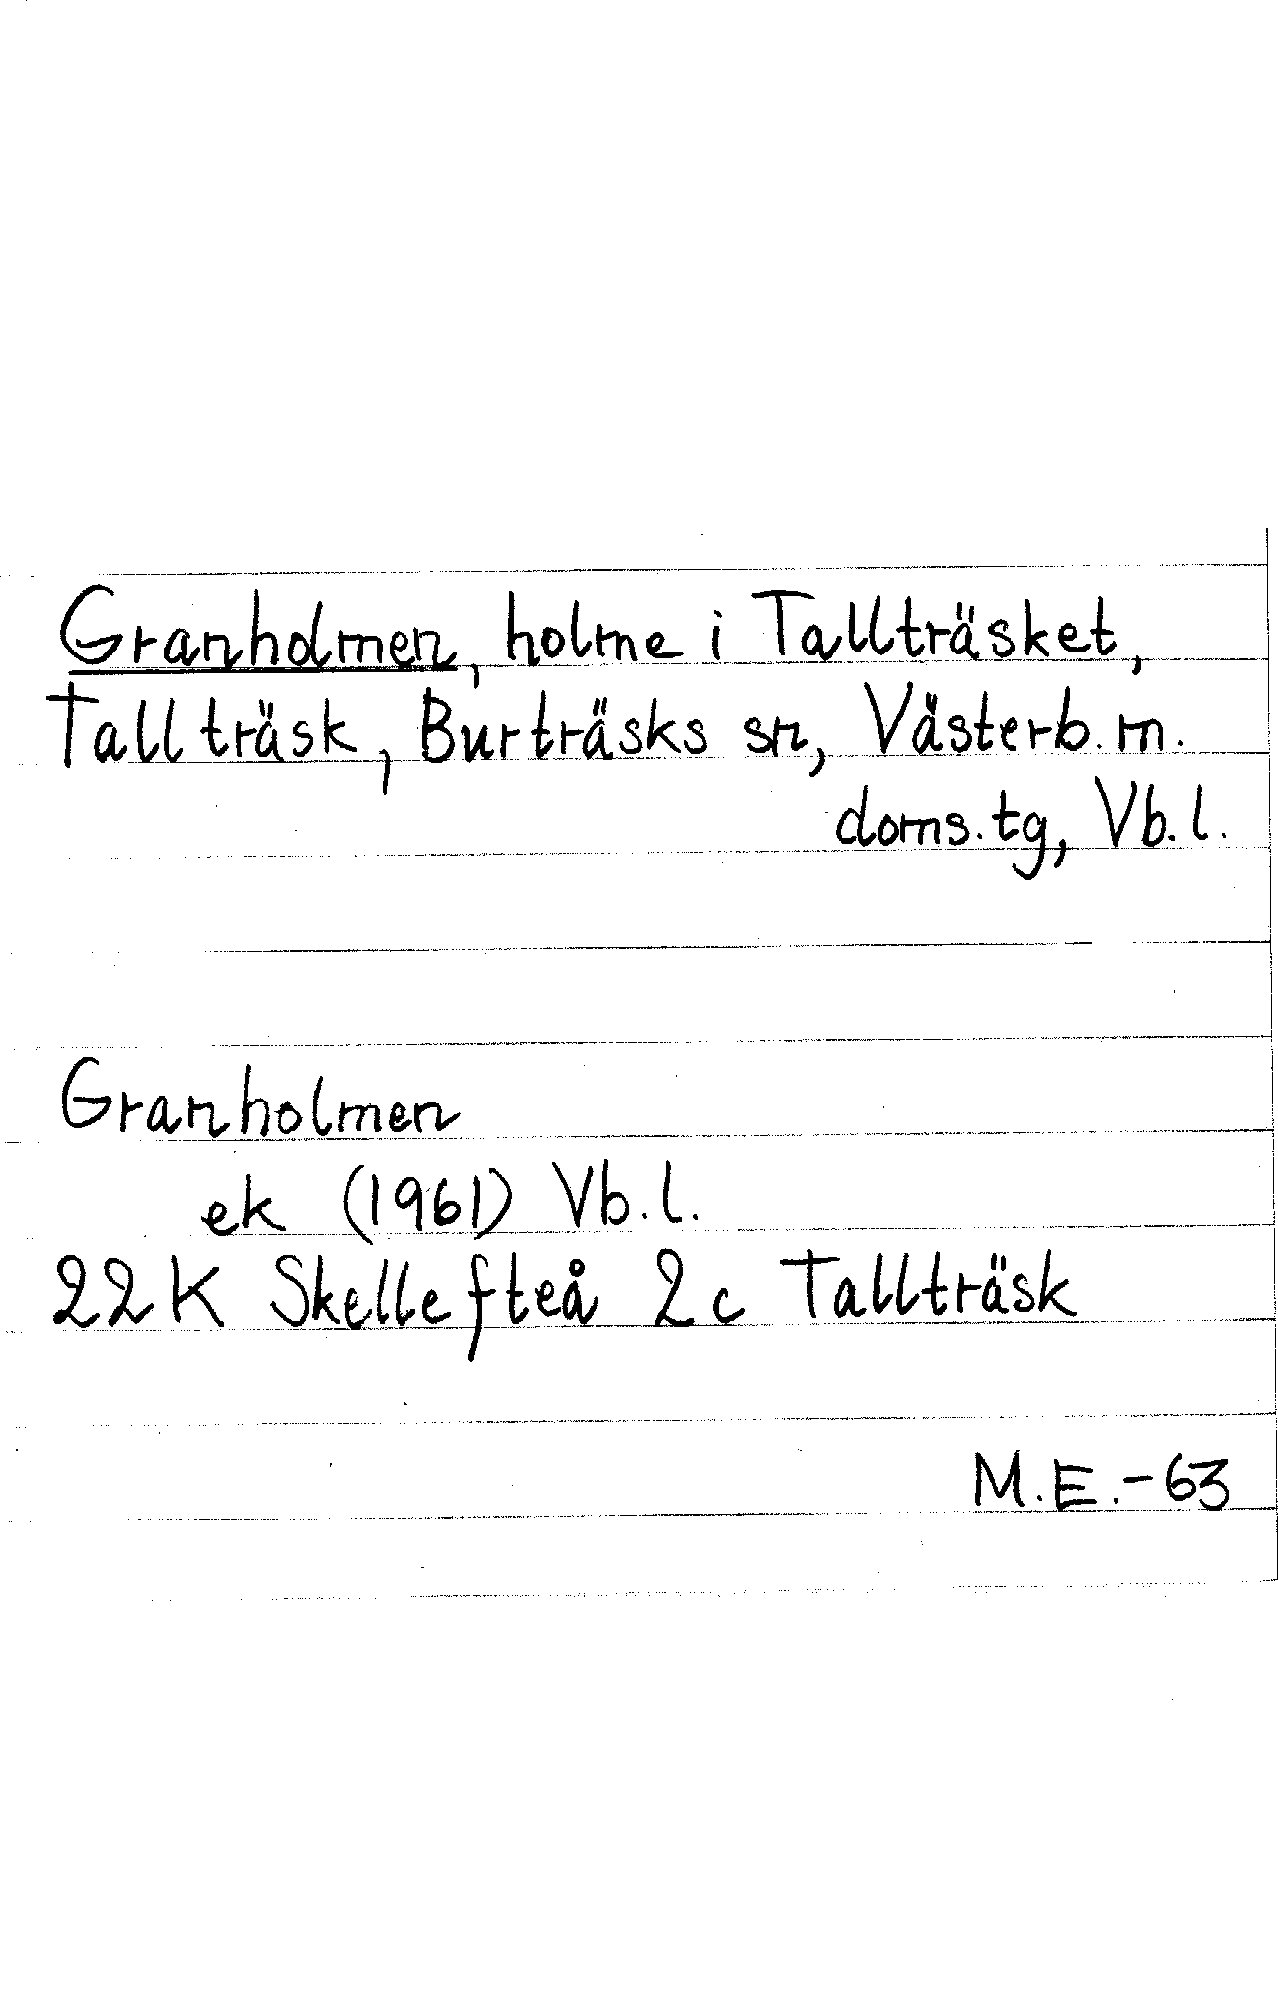 Granholmen, holme i Tallträsket,
Tallträsk, Burträsks sn, Västerb. m.
doms.tg, Vb.l.
Granholmen
ek (1961) Vb.l.
22K Skellefteå 2c Tallträsk
M.E.-63